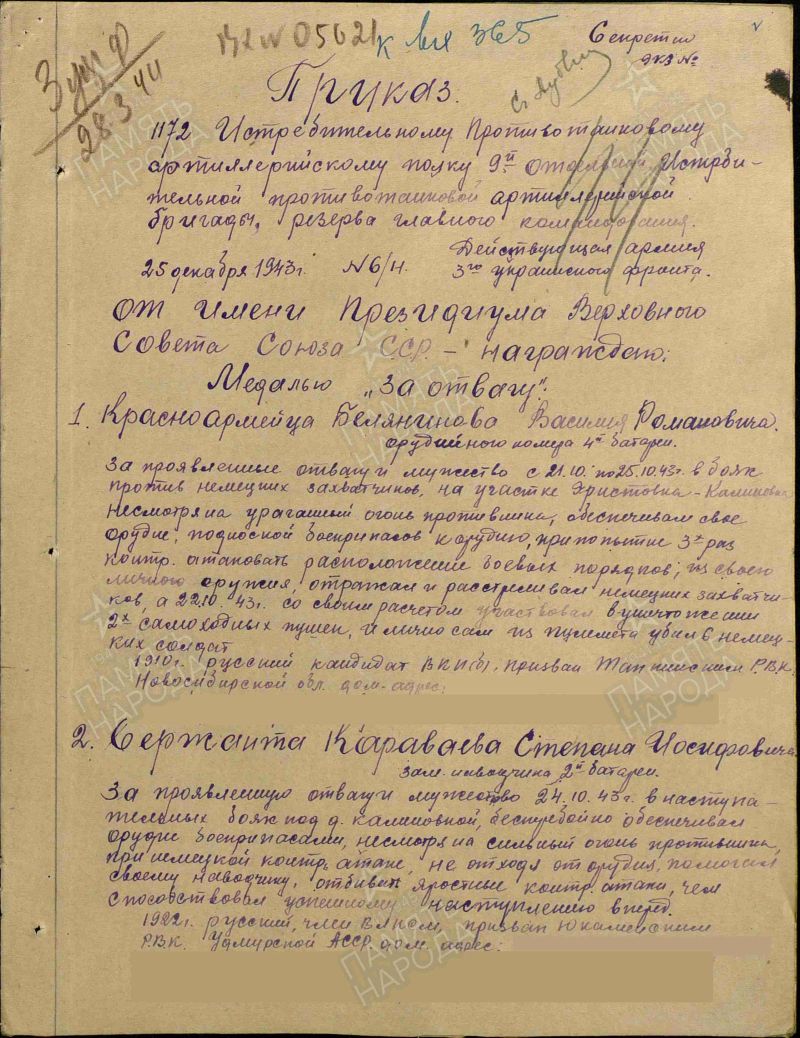 05021 к вл 365
Секретно
экз №
28.3.44
Приказ.
1172 Истребительному Противотанковому
артиллерийскому полку 9й отдельной Истреби-
тельной противотанковой артиллерийской
бригады, резерва главного командования.
Действующая армия
25 декабря 1943г. №6/н. 3го украинского фронта.
От имени Президиума Верховного
Совета Союза ССР – награждаю:
Медалью „За отвагу".
1. Красноармейца Белянинова Василия Романовича.
орудийного номера 4й батареи.
За проявленные отвагу и мужество с 21.10. по 25.10.43г. в боях
против немецких захватчиков, на участке Христовка-Калиновка
несмотря на ураганный огонь противника, обеспечивал свое
орудие, подноской боеприпасов к орудию, при попытке 3х раз
контр. атаковать расположение боевых порядков, из своего
личного оружия, отражал и расстреливал немецких захватчи-
ков, а 22.10.43г. со своим расчетом участвовал в уничтожении
2х самоходных пушек, и лично сам из пулемета убил 6 немец-
ких солдат
1910г. русский кандидат ВКП(б), призван РВК.
Новосибирской обл. дом-адрес:
2. Сержанта Караваева Степана Иосифовича
зам. наводчика 2й батареи.
За проявленную отвагу и мужество 24.10.43г. в наступа-
тельных боях под д. калиновкой, бесперебойно обеспечивал
орудие боеприпасами, несмотря на сильный огонь противника,
при немецкой контр. атаке, не отходя от орудия, помогал
своему наводчику, отбивать яростные контр. атаки, чем
способствовал успешному наступлению вперед.
1922г. русский, член ВЛКСМ, призван Юкаменским
Р.В.К. Удмурской АССР. дом. адрес:
ПАМЯТЬ НАРОДА